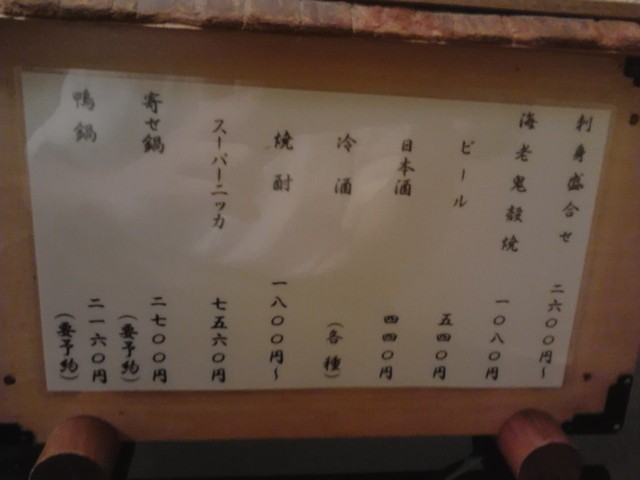 刺身盛合せ 二六〇〇円～
海老鬼殻焼 一〇八〇円
ビール 五四〇円
日本酒 四四〇円
冷酒 (各種)
焼酎 一八〇〇円～
スーパーニッカ 七五六〇円
寄せ鍋 二七〇〇円
(要予約)
鴨鍋 二一六〇円
(要予約)